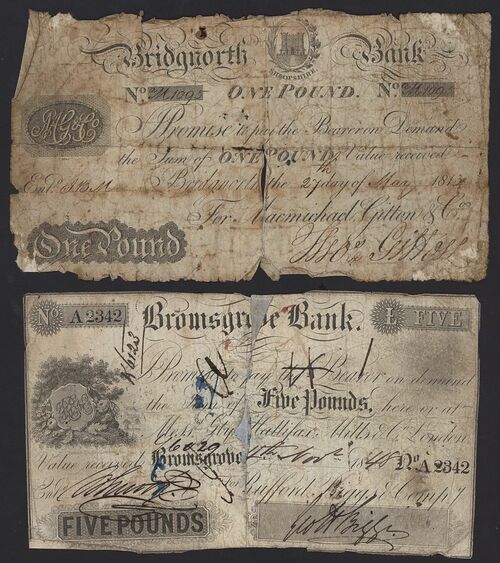 Bridgnorth Bank
SHROPSHIRE
No. M1095 ONE POUND. No. M1095
MG&Co
I Promise to pay the Bearer on Demand
the Sum of ONE POUND Value received
Bridgnorth the 27th day of May 181
Entd.
For Macmichael, Gitton & Co.
One Pound
Thos. Gitton
No. A 2342 Bromsgrove Bank. £ FIVE
I Promise to pay Bearer on demand
the of Five Pounds, here or at
Messrs. Glyn, Hallifax, Mills & Co. London
6820
Value received Bromsgrove Novr. 1848 No. A 2342
Entd. For Rufford, Biggs & Compy.
FIVE POUNDS
Geo Biggs